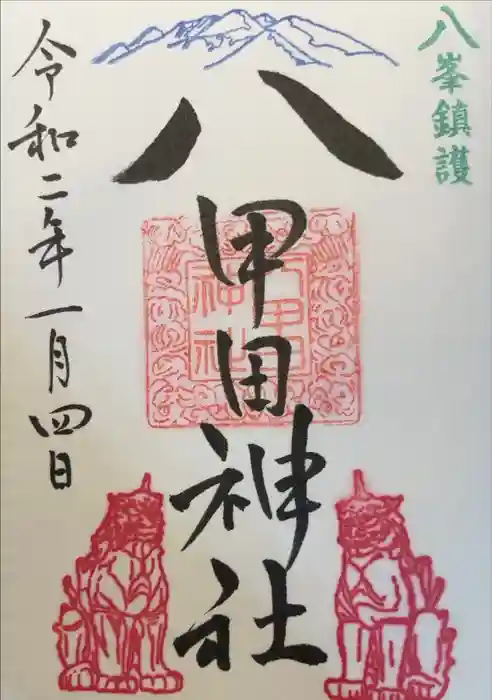 八峯鎮護
八甲田神社
八甲田
神社
令和二年一月四日